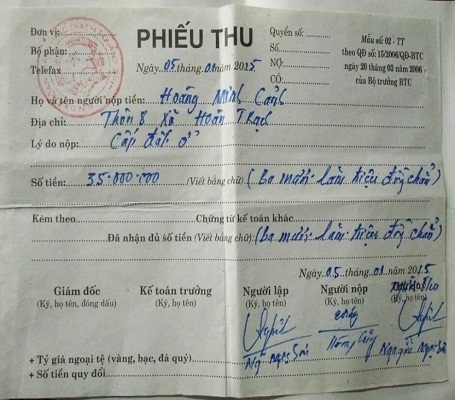 Đơn vị:
PHIẾU THU
Quyển số:
Mẫu số: 02 - TT
Bộ phận:
Số
theo QĐ số: 15/2006/QĐ-BTC
Telefax
Ngày 05 tháng 01 năm 2015
NỢ:
ngày 20 tháng 03 năm 2006
CÓ:
của Bộ trưởng BTC
Họ và tên người nộp tiền: Hoàng Minh Cảnh
Địa chỉ: Thôn 8 Xã Hoàn Trạch
Lý do nộp: Cấp đất ở
Số tiền: 35.000.000 (Viết bằng chữ) (Ba mươi lăm triệu đồng chẵn)
Kèm theo Chứng từ kế toán khác
Đã nhận đủ số tiền (Viết bằng chữ): (Ba mươi lăm triệu đồng chẵn)
Ngày 05 tháng 01 năm 2015
Giám đốc Kế toán trưởng Người lập Người nộp
(Ký, họ tên, đóng dấu) (Ký, họ tên) (Ký, họ tên) (Ký, họ tên) (Ký, họ tên)
+ Tỷ giá ngoại tệ (vàng, bạc, đá quý)
+ Số tiền quy đổi